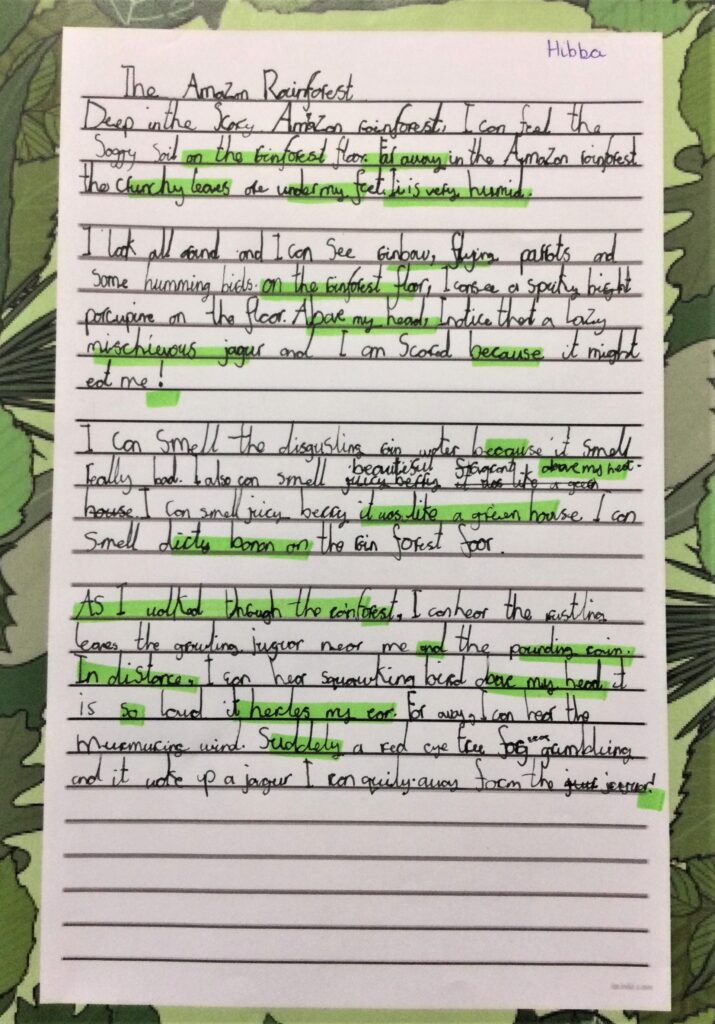 Hibba
The Amazon Rainforest
Deep in the Scary Amazon rainforest, I can feel the
Soggy Soil on the rainforest floor. Far away in the Amazon rainforest
the crunchy leaves are under my feet. It is very humid.
I look all around and I can See rainbow, flying parrots and
Some humming birds. on the rainforest floor, I can see a spikey bright
porcupine on the floor. Above my head, I notice that a Lazy
mischievous jagur and I am Scared because it might
eat me!
I can Smell the disgusting rain water because it smell
really bad. I also can smell beautiful fragrant above my head.
juicy berry it was like a green
house. I can smell juicy berry it was like a green house I can
Smell dirty banan on the rain forest foor.
As I walked through the rainforest, I can hear the rustling
leaves the growling juguar near me and the pounding rain.
In distance, I can hear squawking bird above my head it
is so loud it hertes my ear. Far away, I can hear the
murmuring wind. Suddely a red eye tree frog was grambling
and it woke up a jaguar I ran quily away form the